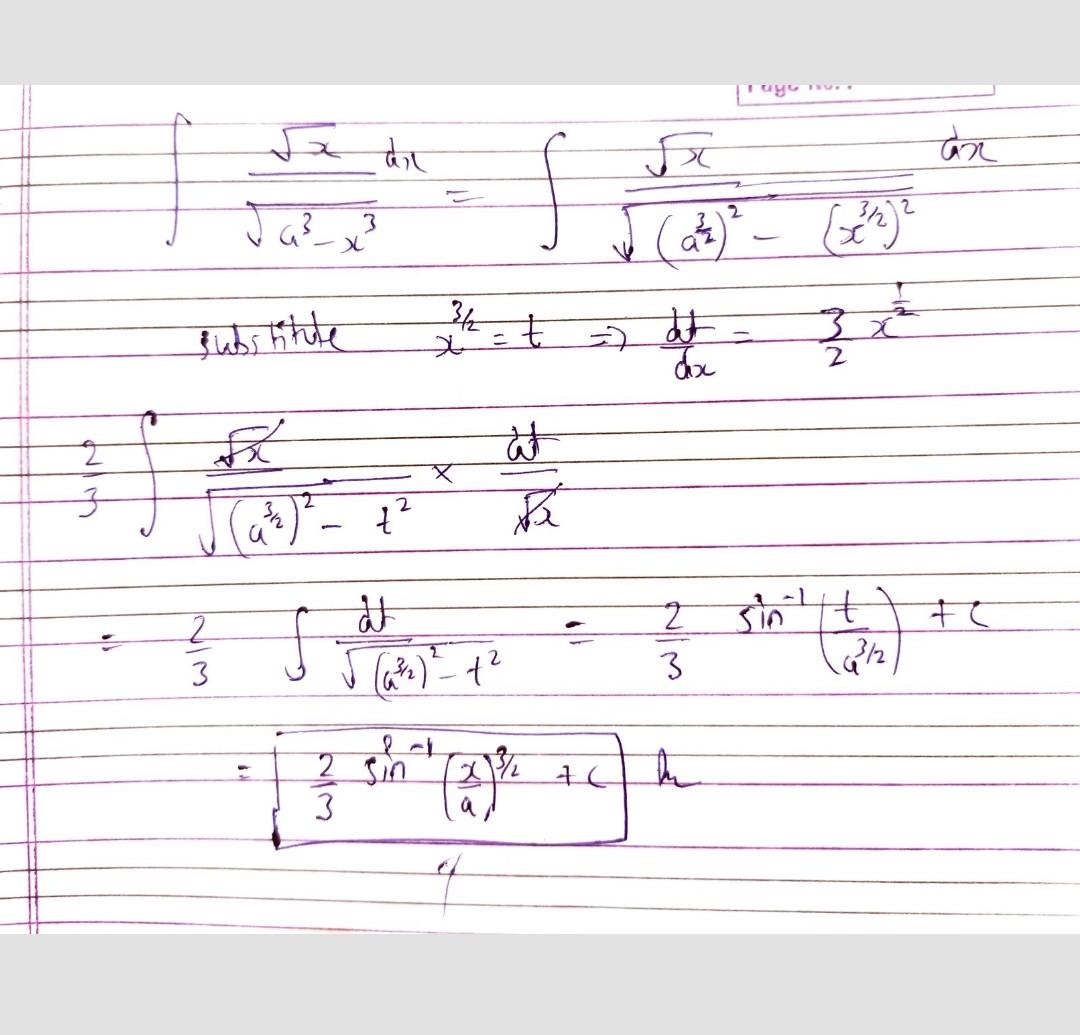 Page No.:
∫ √x/√(a³-x³) dx = ∫ √x/√((a^(3/2))² - (x^(3/2))²) dx
substitute x^(3/2) = t => dt/dx = 3/2 x^(1/2)
2/3 ∫ √x/√((a^(3/2))² - t²) × dt/√x
= 2/3 ∫ dt/√((a^(3/2))² - t²) = 2/3 sin⁻¹(t/a^(3/2)) + c
= 2/3 sin⁻¹(x/a)^(3/2) + c